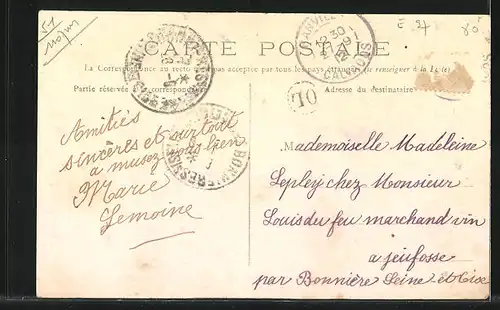 CARTE POSTALE
La Correspondance au recto n'est pas acceptée par tous les pays étrangers (se renseigner à la Poste)
Partie réservée à la correspondance
Adresse du destinataire
OL
30
12
CALVADOS
BONNIÈRES
Amitiés
sincères et surtout
a musez vous bien
Marie
Lemoine
Mademoiselle Madeleine
Lepley chez Monsieur
Louis du feu marchand vin
a jeufosse
par Bonnière Seine et Oise